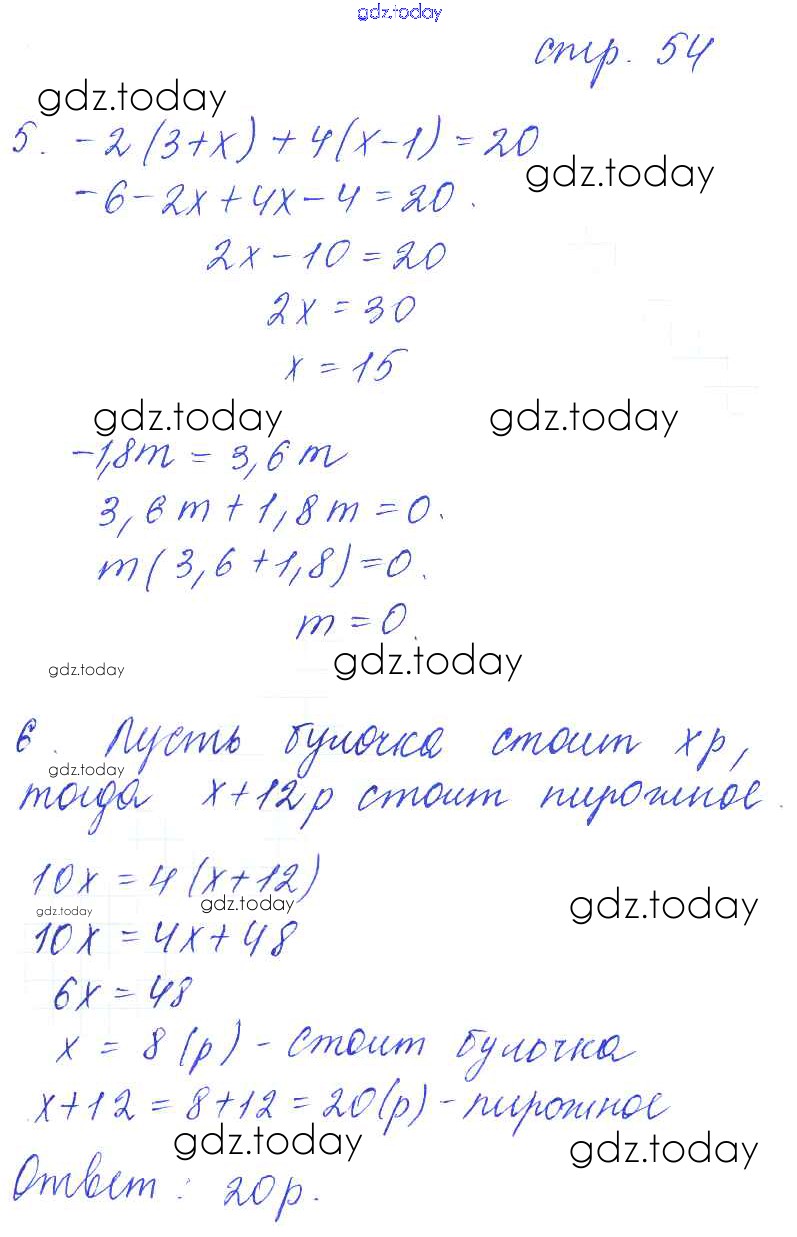 gdz.today
стр. 54
gdz.today
5. -2(3+x)+4(x-1)=20
gdz.today
-6-2x+4x-4=20.
2x-10=20
2x=30
x=15
gdz.today gdz.today
-1,8m=3,6m
3,6m+1,8m=0.
m(3,6+1,8)=0.
m=0.
gdz.today gdz.today
6. Пусть булочка стоит xр,
gdz.today
тогда x+12р стоит пирожное.
10x=4(x+12)
gdz.today gdz.today gdz.today
10x=4x+48
6x=48
x=8(р)-стоит булочка
x+12=8+12=20(р)-пирожное
gdz.today gdz.today
Ответ: 20р.